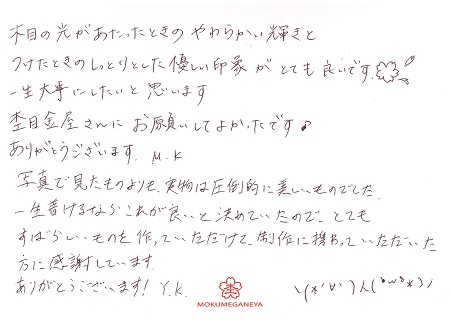 木目の光があたったときのやわらかい輝きと
つけたときのしっとりとした優しい印象がとても良いです。
一生大事にしたいと思います
杢目金屋さんにお願いしてよかったです♪
ありがとうございます。 M.K
写真で見たものよりも、実物は圧倒的に美しいものでした。
一生着けるならこれが良いと決めていたので、とても
すばらしいものを作っていただけて、制作に携わっていただいた
方に感謝しています。
ありがとうございます! Y.K.
MOKUMEGANEYA